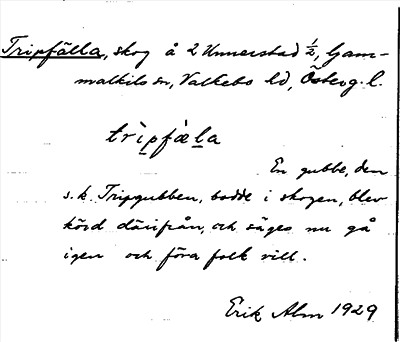 Tripfälla, skog å 2 Unnerstad ½, Gam-
malkils sn, Valkebo hd, Österg. l.
trìpfæla
En gubbe, den
s.k. Tripgubben, bodde i skogen, blev
körd därifrån, och säges nu gå
igen och föra folk vill.
Erik Alm 1929